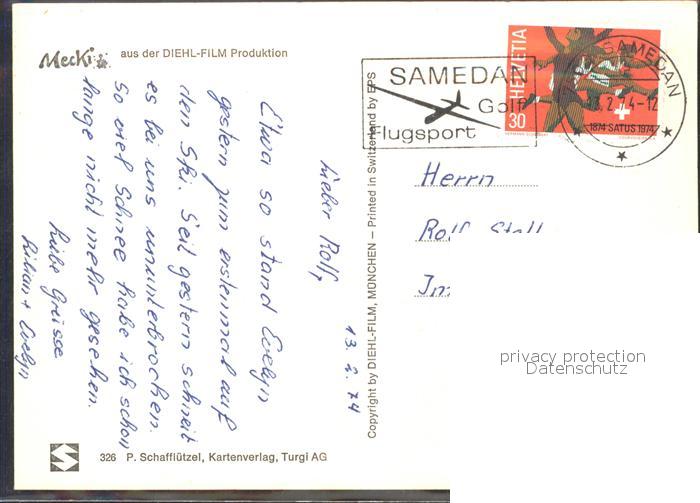 Mecki
aus der DIEHL-FILM Produktion
13. 2. 74
Lieber Rolf,
Etwa so stand Evelyn
gestern zum erstenmal auf
den Ski. Seit gestern schneit
es bei uns ununterbrochen.
So viel Schnee habe ich schon
lange nicht mehr gesehen.
Liebe Grüsse
Kilian + Evelyn
Copyright by DIEHL-FILM, MÜNCHEN – Printed in Switzerland by EPS
SAMEDAN
Golf
Flugsport
HELVETIA
30
1874 SATUS 1974
SAMEDAN
2.74-12
Herrn
Rolf
privacy protection
Datenschutz
326 P. Schafflützel, Kartenverlag, Turgi AG